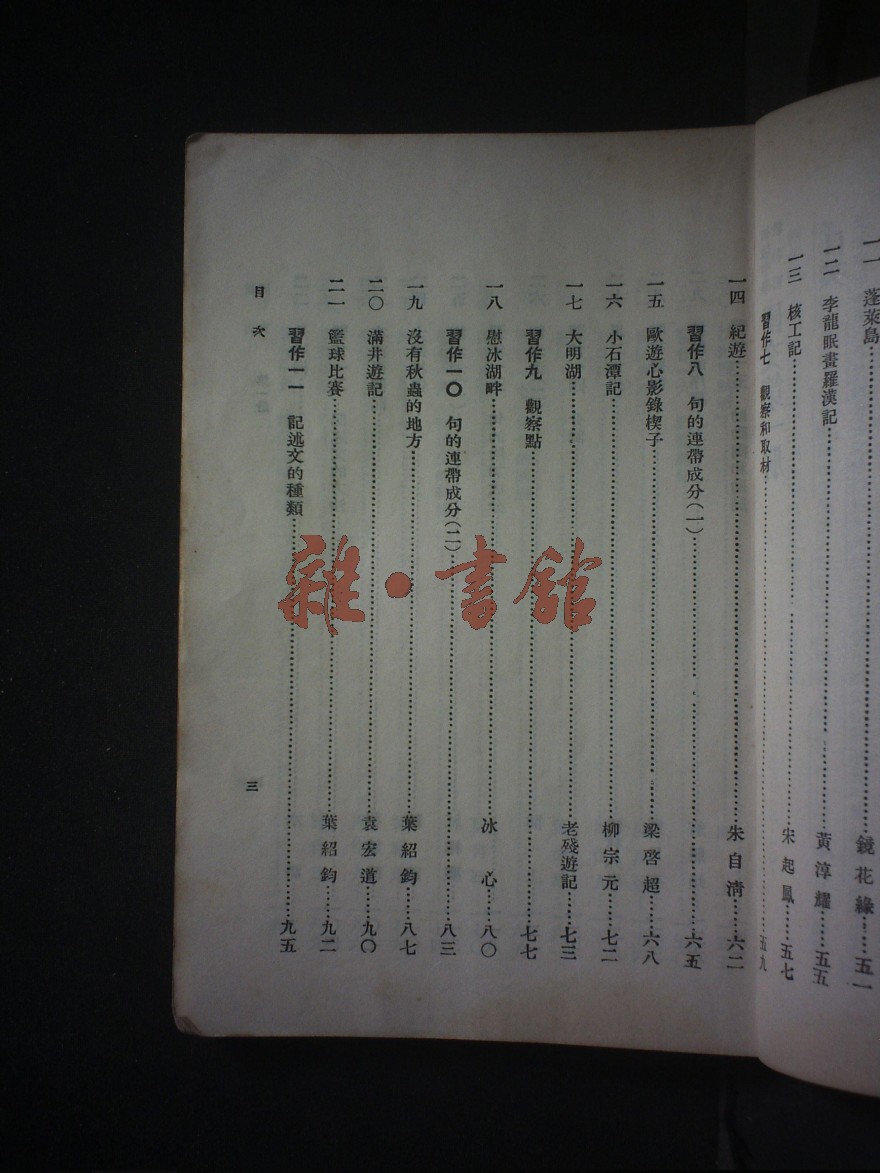 一一 蓬萊島……鏡花緣……五一
一二 李龍眠畫羅漢記……黃淳耀……五五
一三 核工記……宋起鳳……五七
習作七 觀察和取材……五九
一四 紀遊……朱自清……六二
習作八 句的連帶成分(一)……六五
一五 歐遊心影錄楔子……梁啓超……六八
一六 小石潭記……柳宗元……七二
一七 大明湖……老殘遊記……七三
習作九 觀察點……七七
一八 慰冰湖畔……冰心……八〇
習作一〇 句的連帶成分(二)……八三
一九 沒有秋蟲的地方……葉紹鈞……八七
二〇 滿井遊記……袁宏道……九〇
二一 籃球比賽……葉紹鈞……九二
習作一一 記述文的種類……九五
目次
三
雜·書館